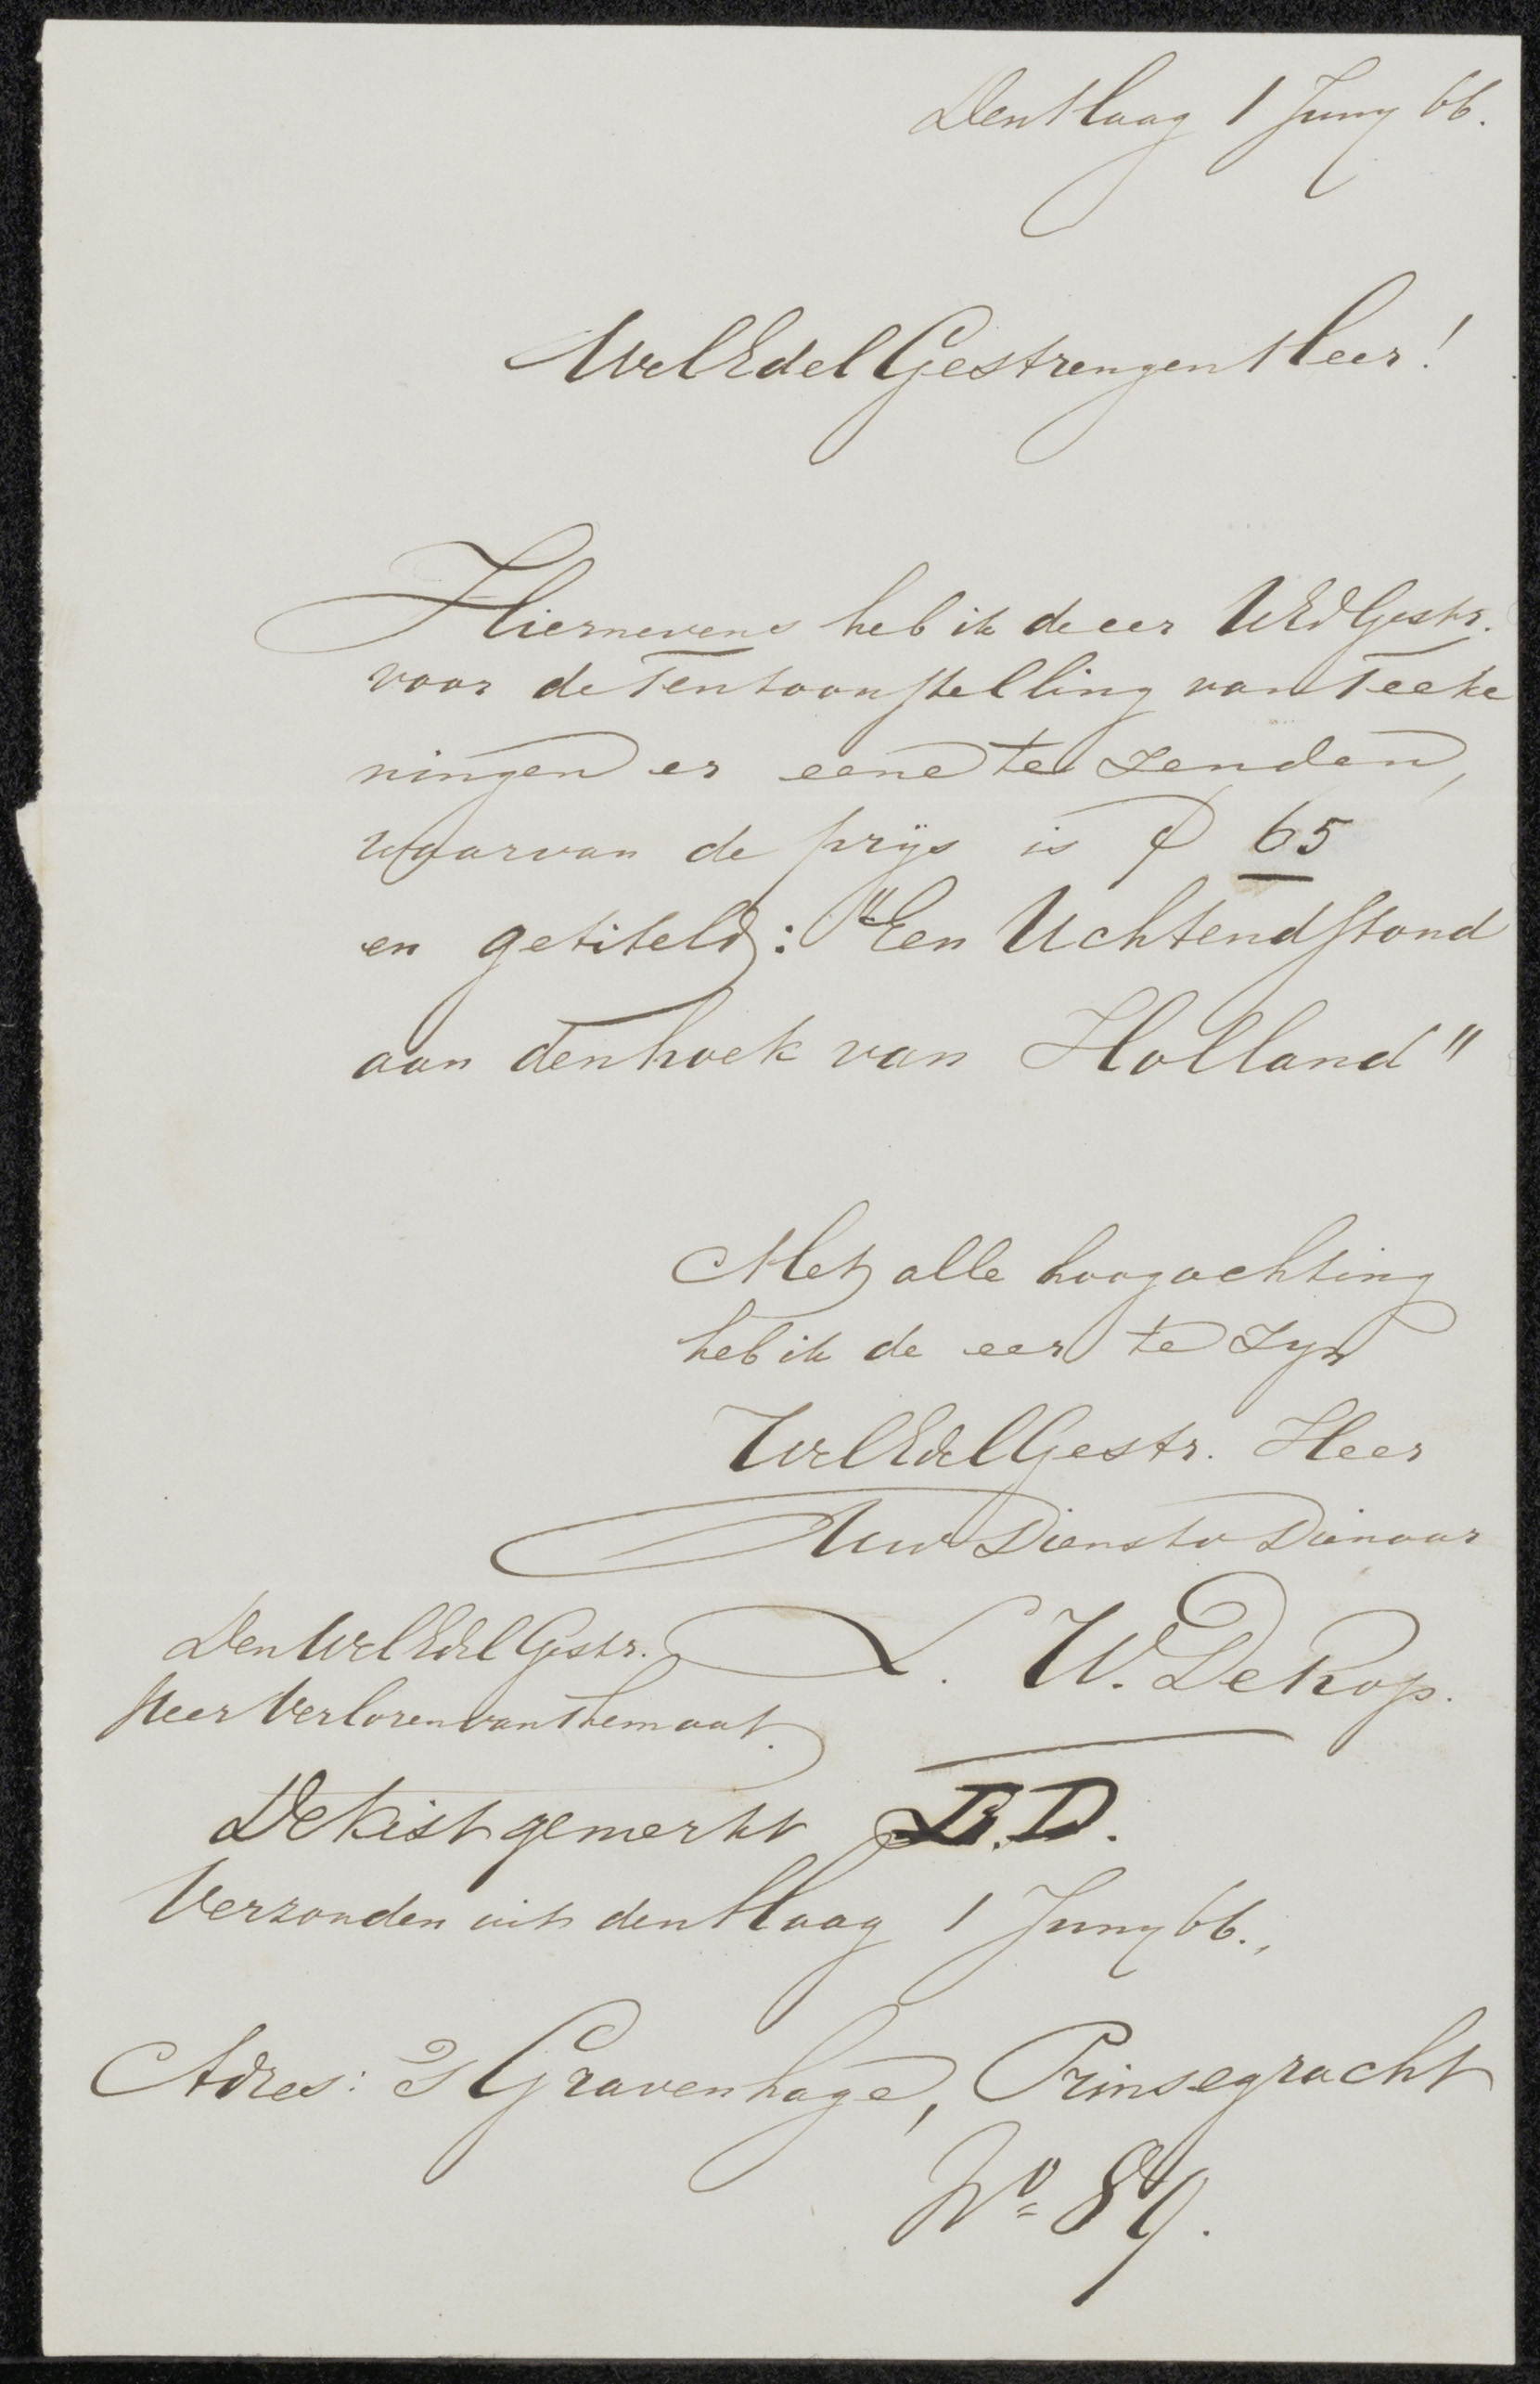 Den Haag 1 Juny 66.
WelEdelGestrengen Heer!
Hiernevens heb ik de eer UEdGestr.
voor de Tentoonstelling van Teeke
ningen er eene te zenden,
waarvan de prijs is ƒ 65
en getiteld: "Een Uchtendstond
aan den hoek van Holland"
Met alle hoogachting
heb ik de eer te zyn
WelEdelGestr. Heer
Uw Dienstv Dienaar
L. W. Dekop.
Den WelEdelGestr.
Heer Verloren van Themaat.
De kist gemerkt D.
Verzonden uit den Haag 1 Juny 66.,
Adres: 's Gravenhage, Prinsegracht
No 89.